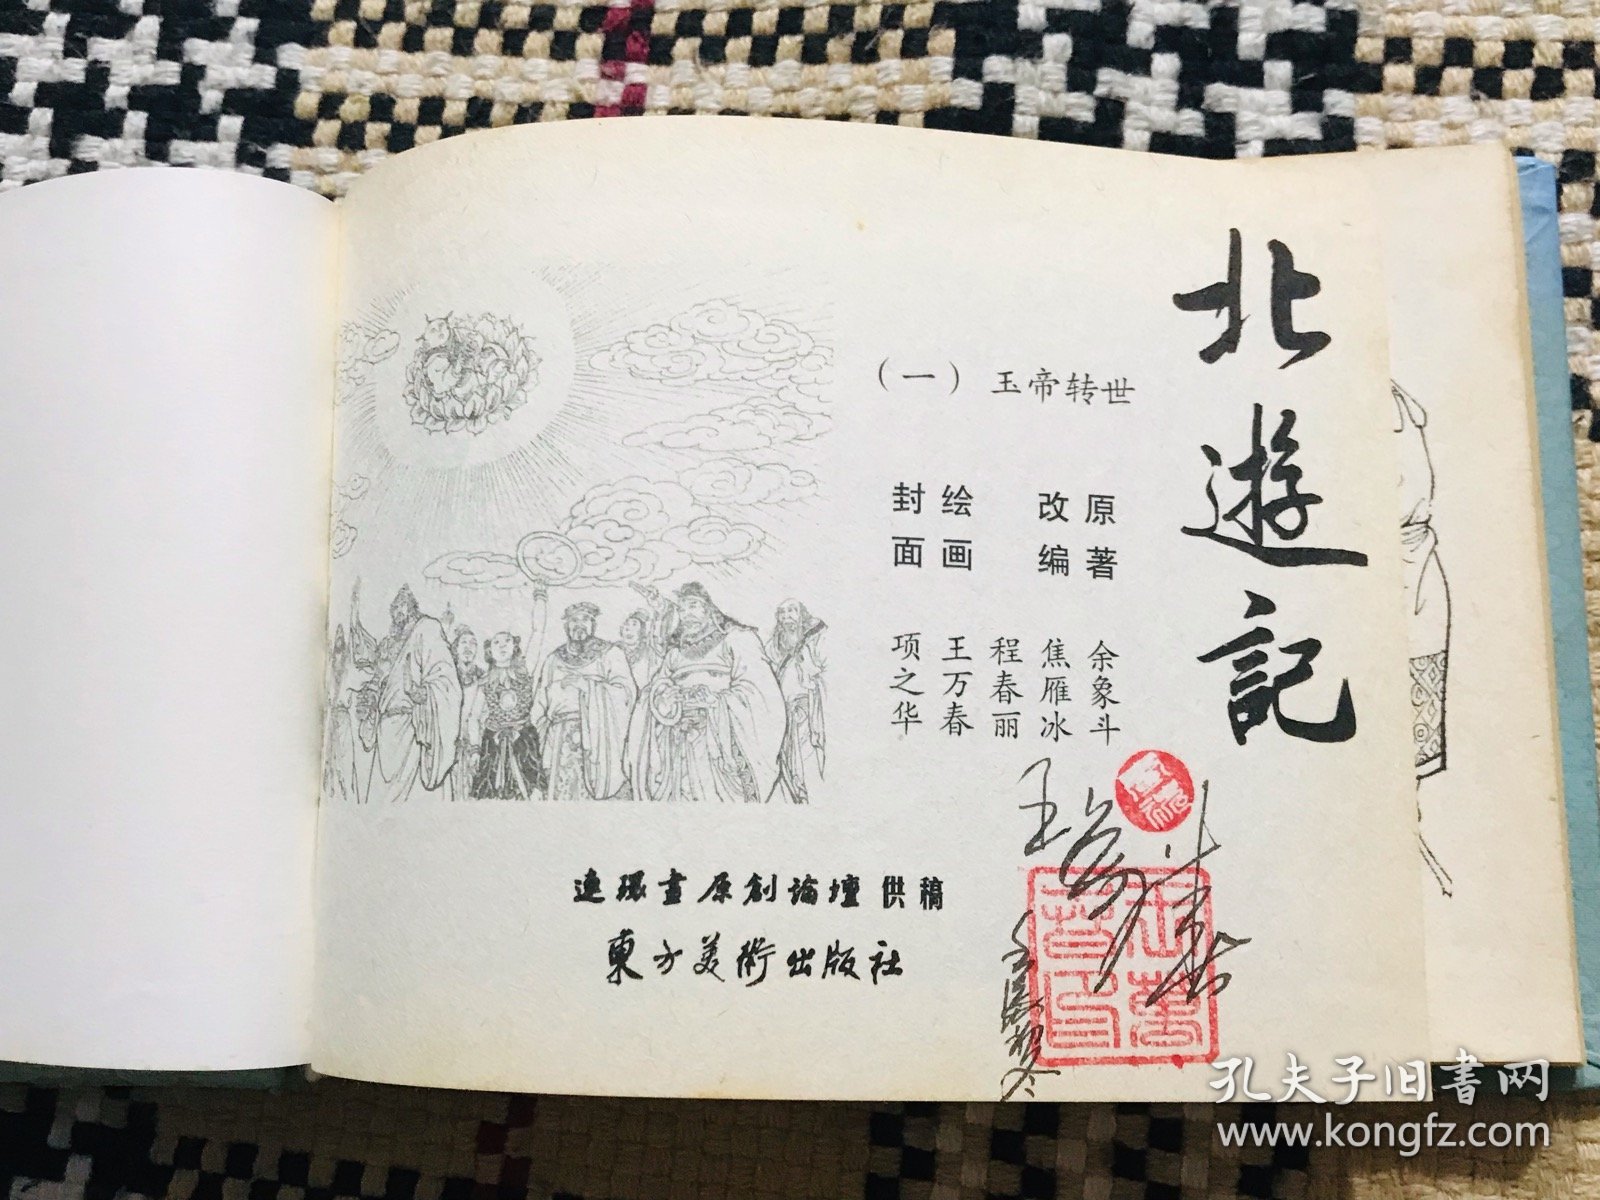 北遊記
（一） 玉帝转世
原著 余象斗
改编 焦雁冰
程春丽
绘画 王万春
封面 项之华
連环畫原創論壇供稿
東方美術出版社
王万春
孔夫子旧书网
www.kongfz.com